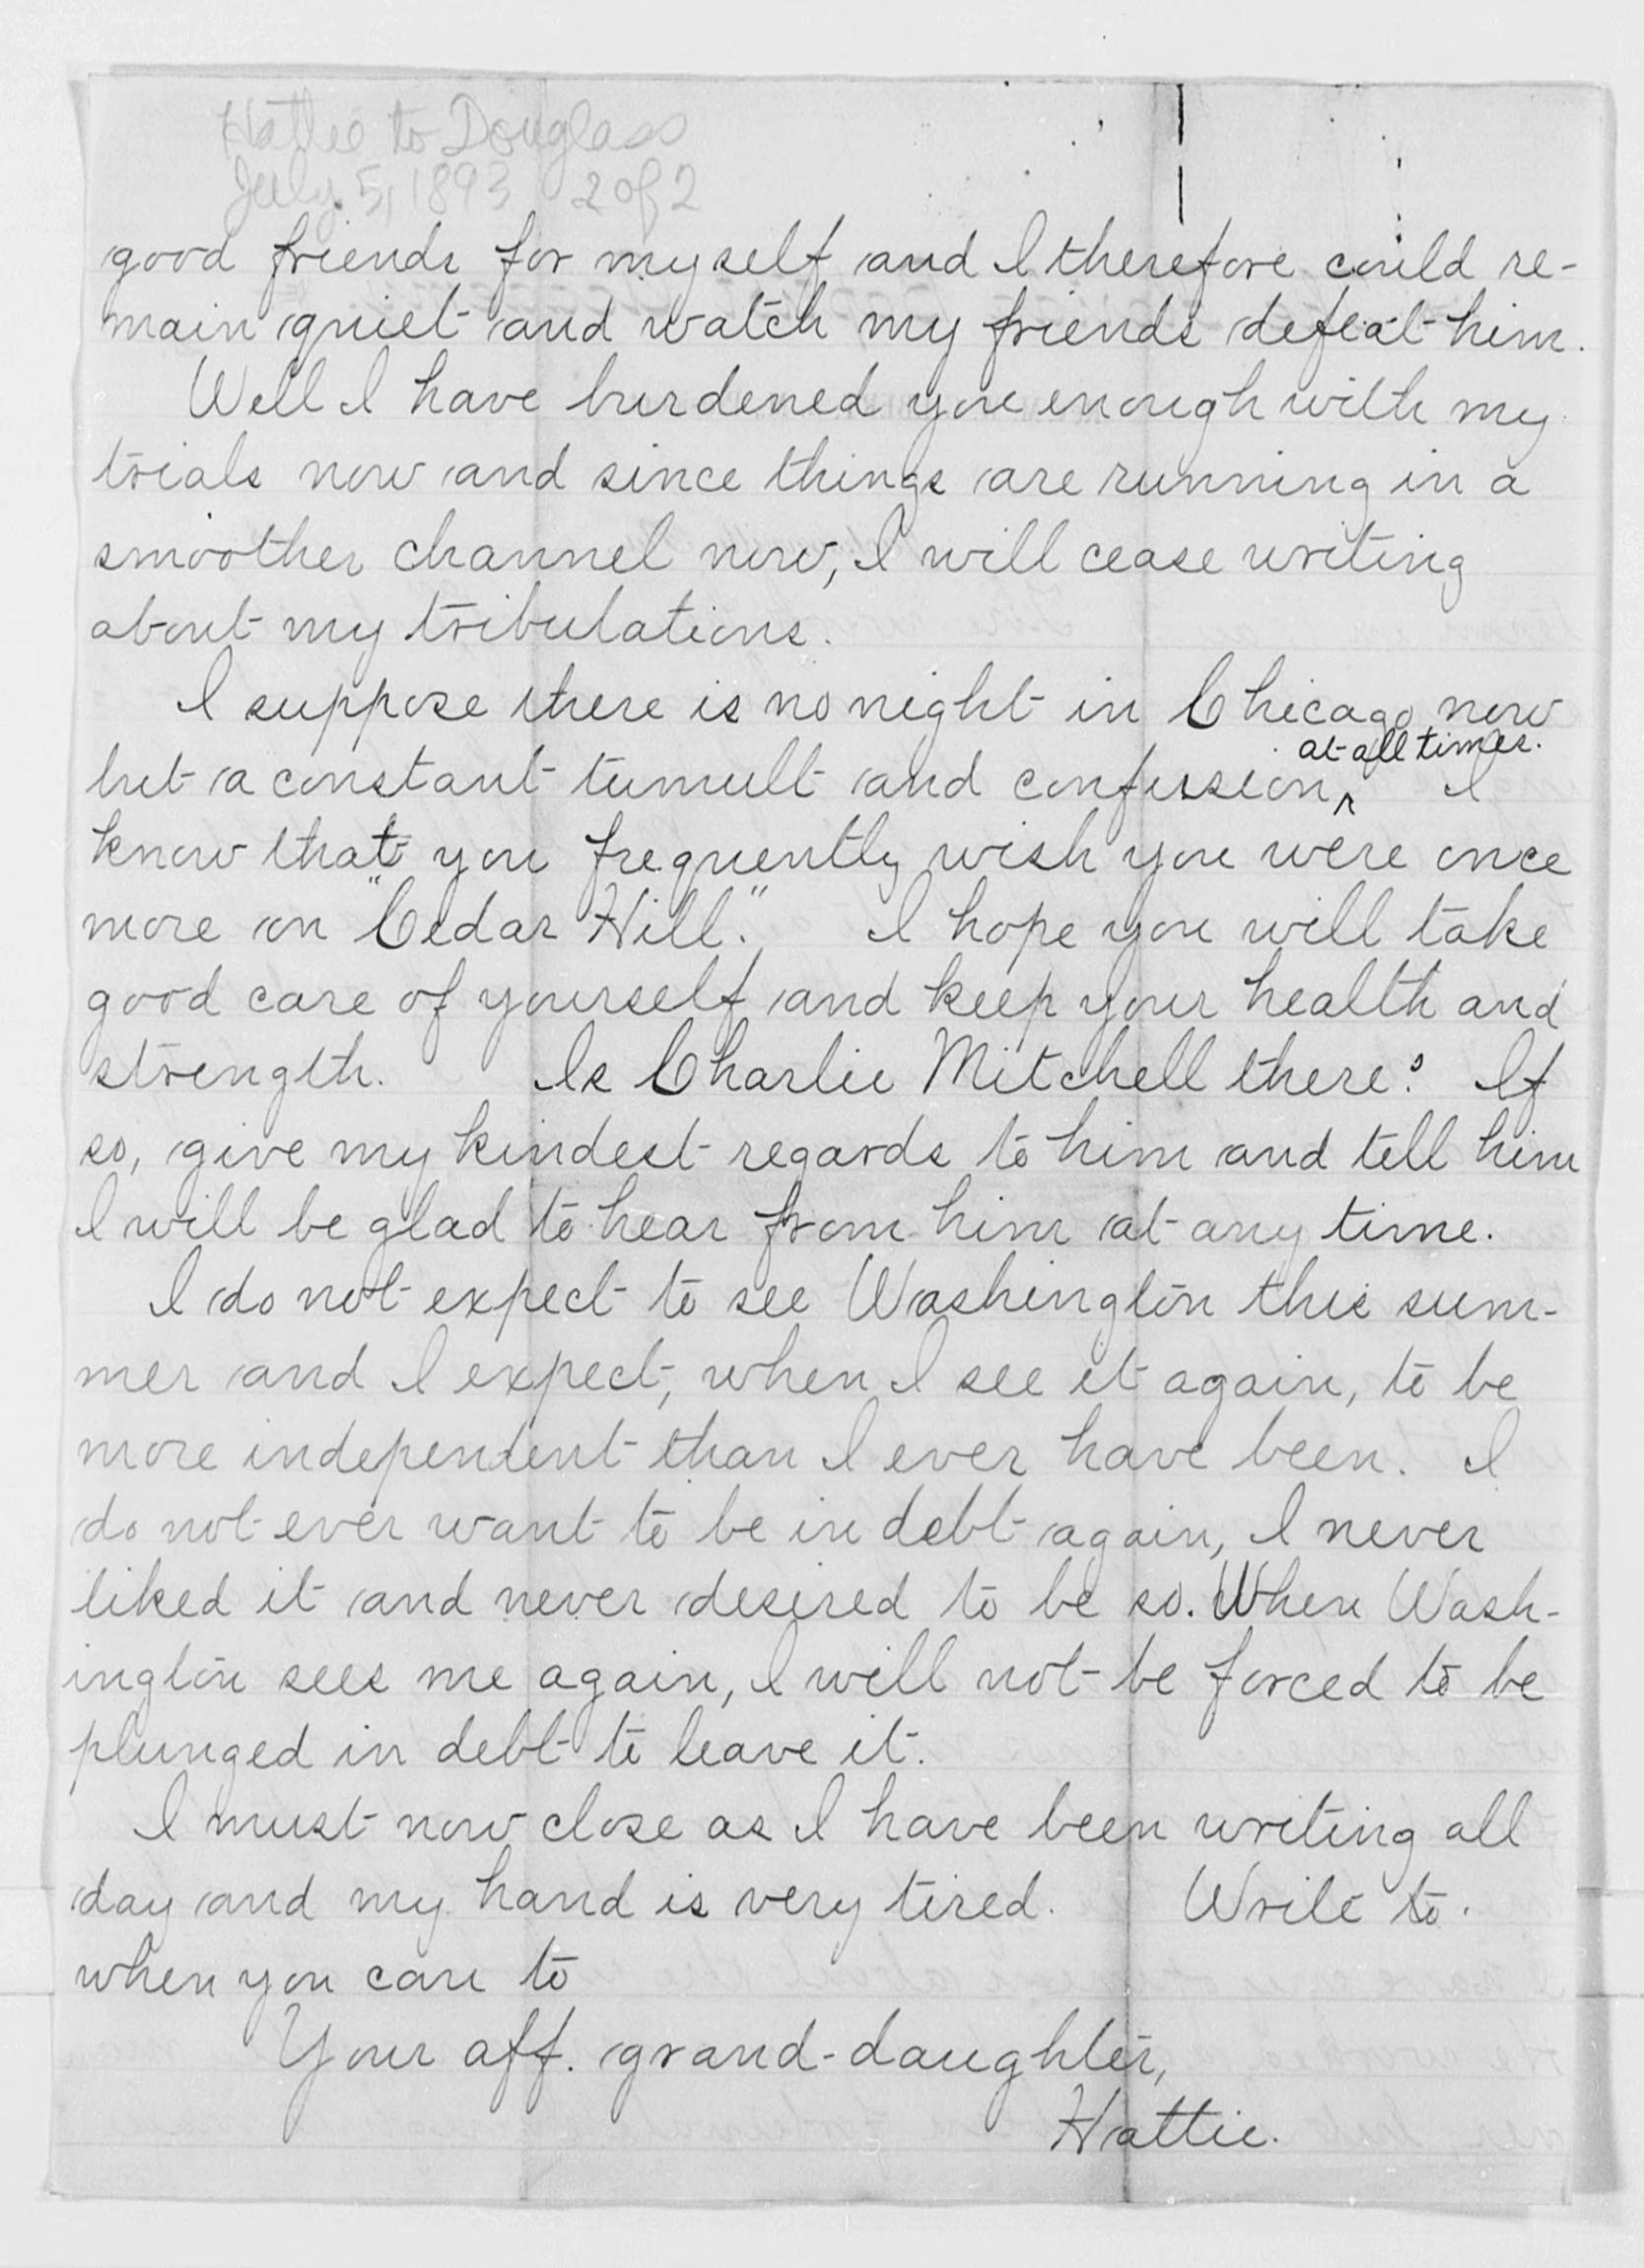 Hattie to Douglass
July 5, 1893 2 of 2
good friends for myself and I therefore could re-
main quiet and watch my friends defeat him.
Well I have burdened you enough with my
trials now and since things are running in a
smoother channel now, I will cease writing
about my tribulations.
I suppose there is no night in Chicago now
at all times.
but a constant tumult and confusion^ I
know that you frequently wish you were once
more on "Cedar Hill." I hope you will take
good care of yourself and keep your health and
strength. Is Charlie Mitchell there? If
so, give my kindest regards to him and tell him
I will be glad to hear from him at any time.
I do not expect to see Washington this sum-
mer and I expect, when I see it again, to be
more independent than I ever have been. I
do not ever want to be in debt again, I never
liked it and never desired to be so. When Wash-
ington sees me again, I will not be forced to be
plunged in debt to leave it.
I must now close as I have been writing all
day and my hand is very tired. Write to.
when you care to
Your aff. grand-daughter,
Hattie.